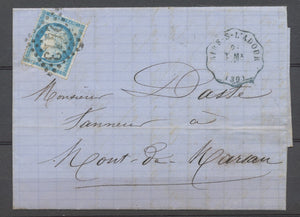 AIRE-S-L'ADOUR
(30)
Monsieur Dasté
Tanneur à
Mont-de-Marsan